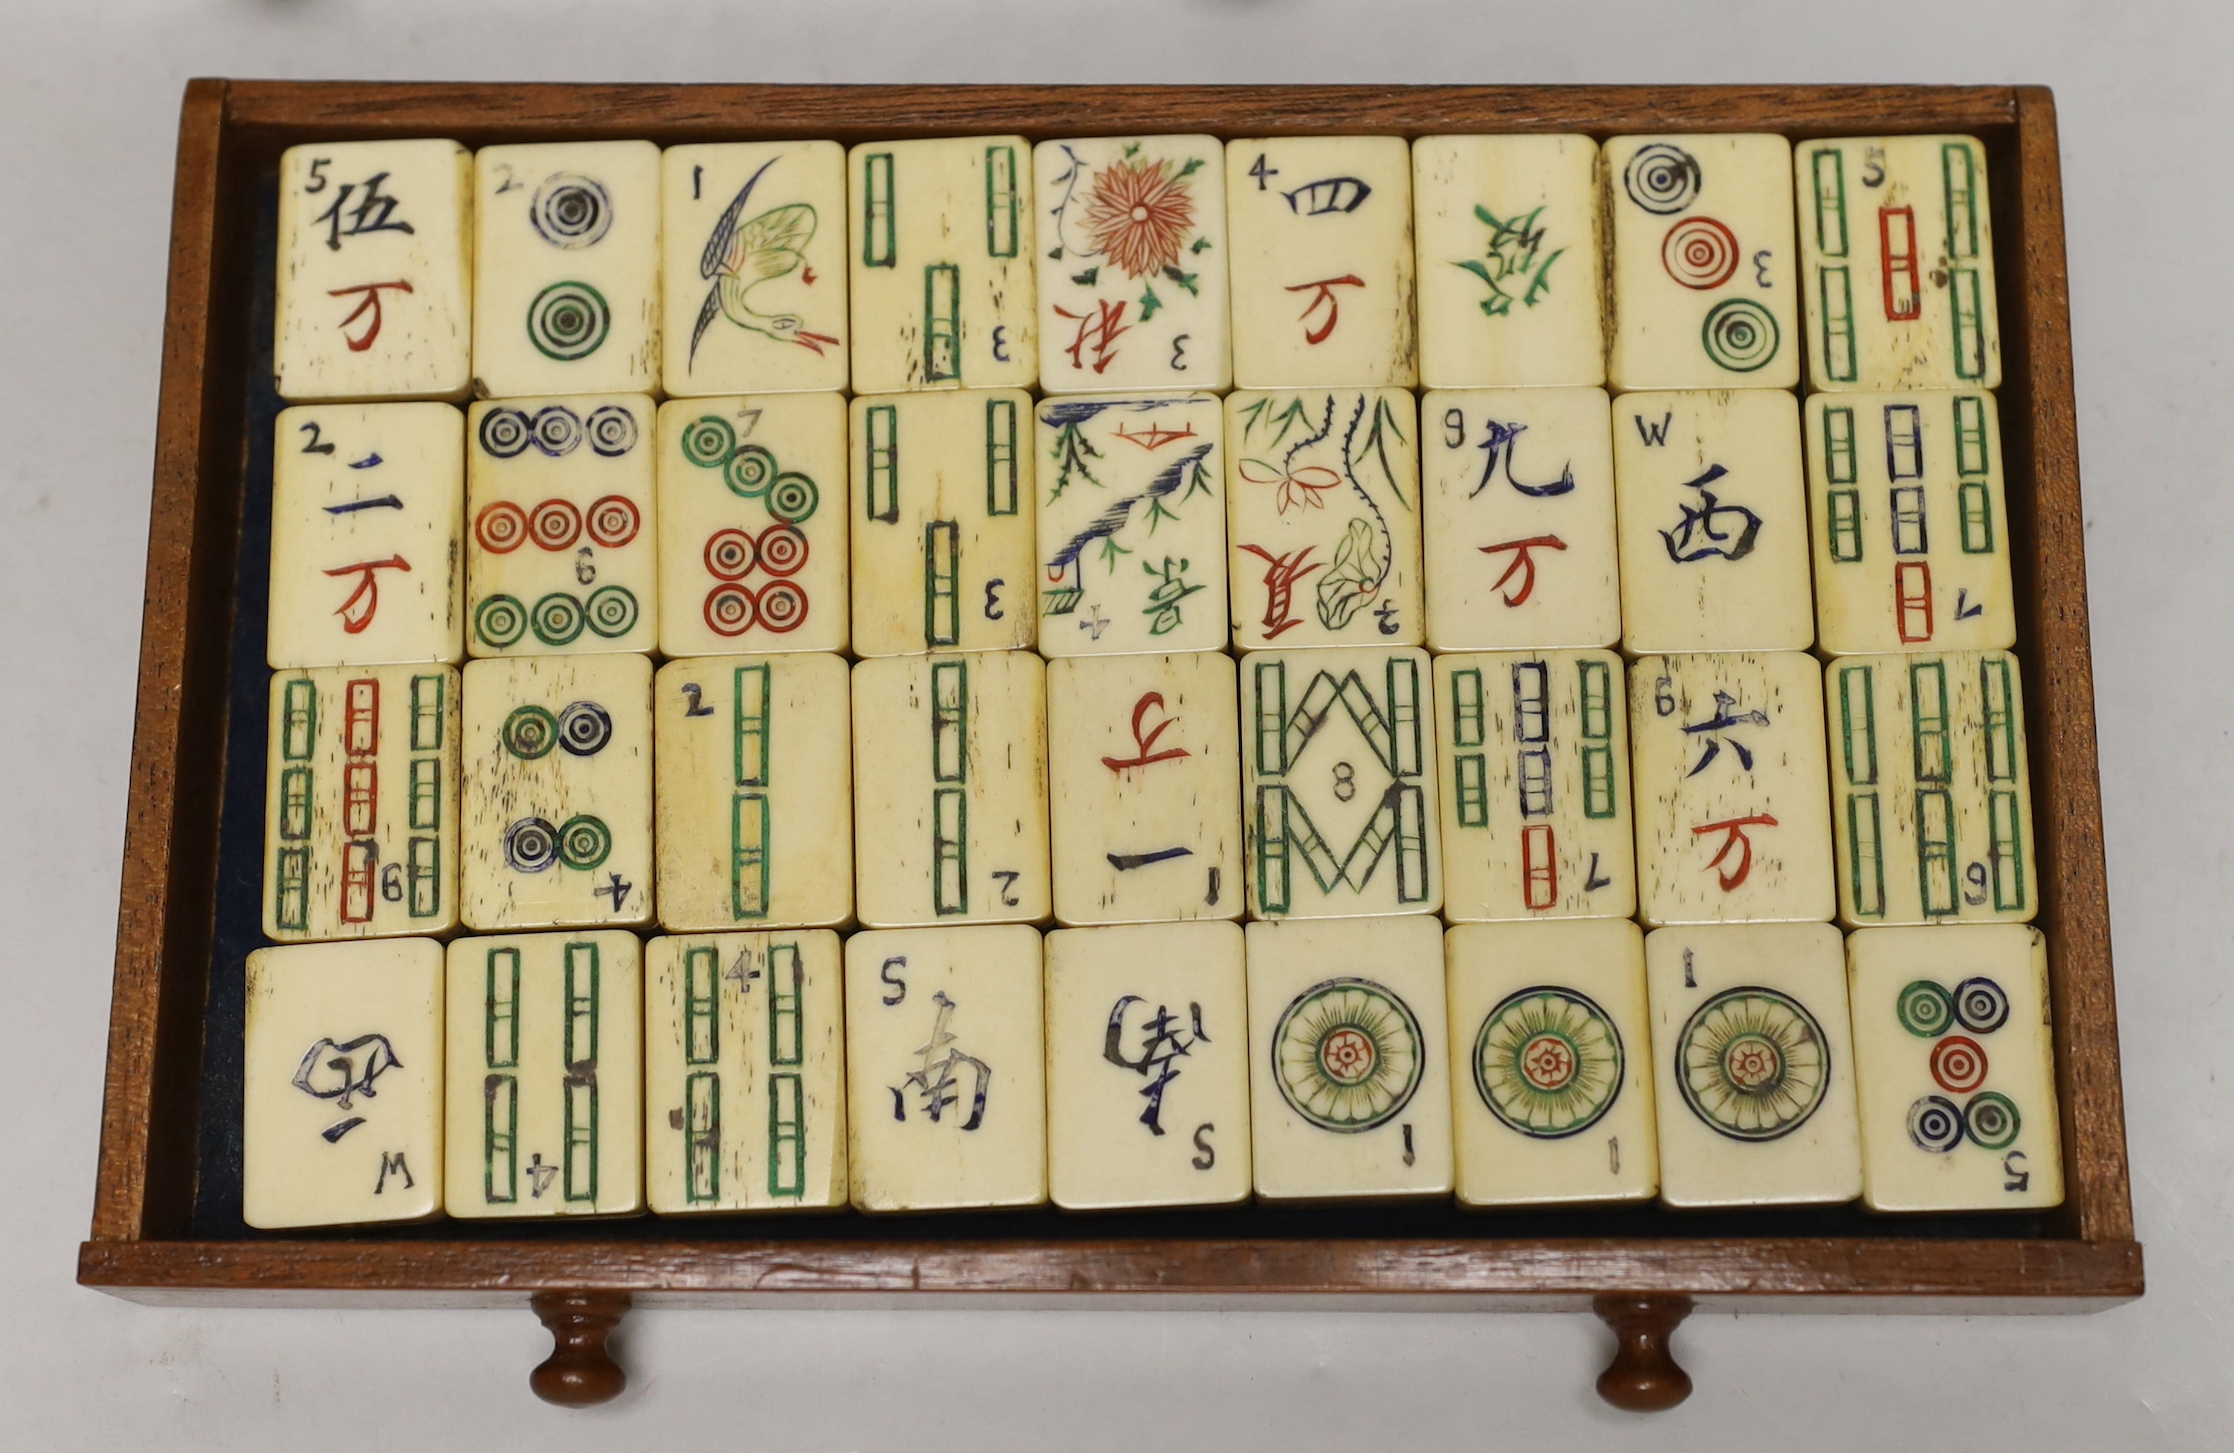 5
伍
万
2
1
3
秋
3
4
四
万
發
3
5
2
二
万
6
7
3
景
4
夏
2
9
九
万
W
西
7
9
4
2
2
1
一
万
8
7
6
六
万
6
西
W
4
4
S
南
南
S
1
1
1
5